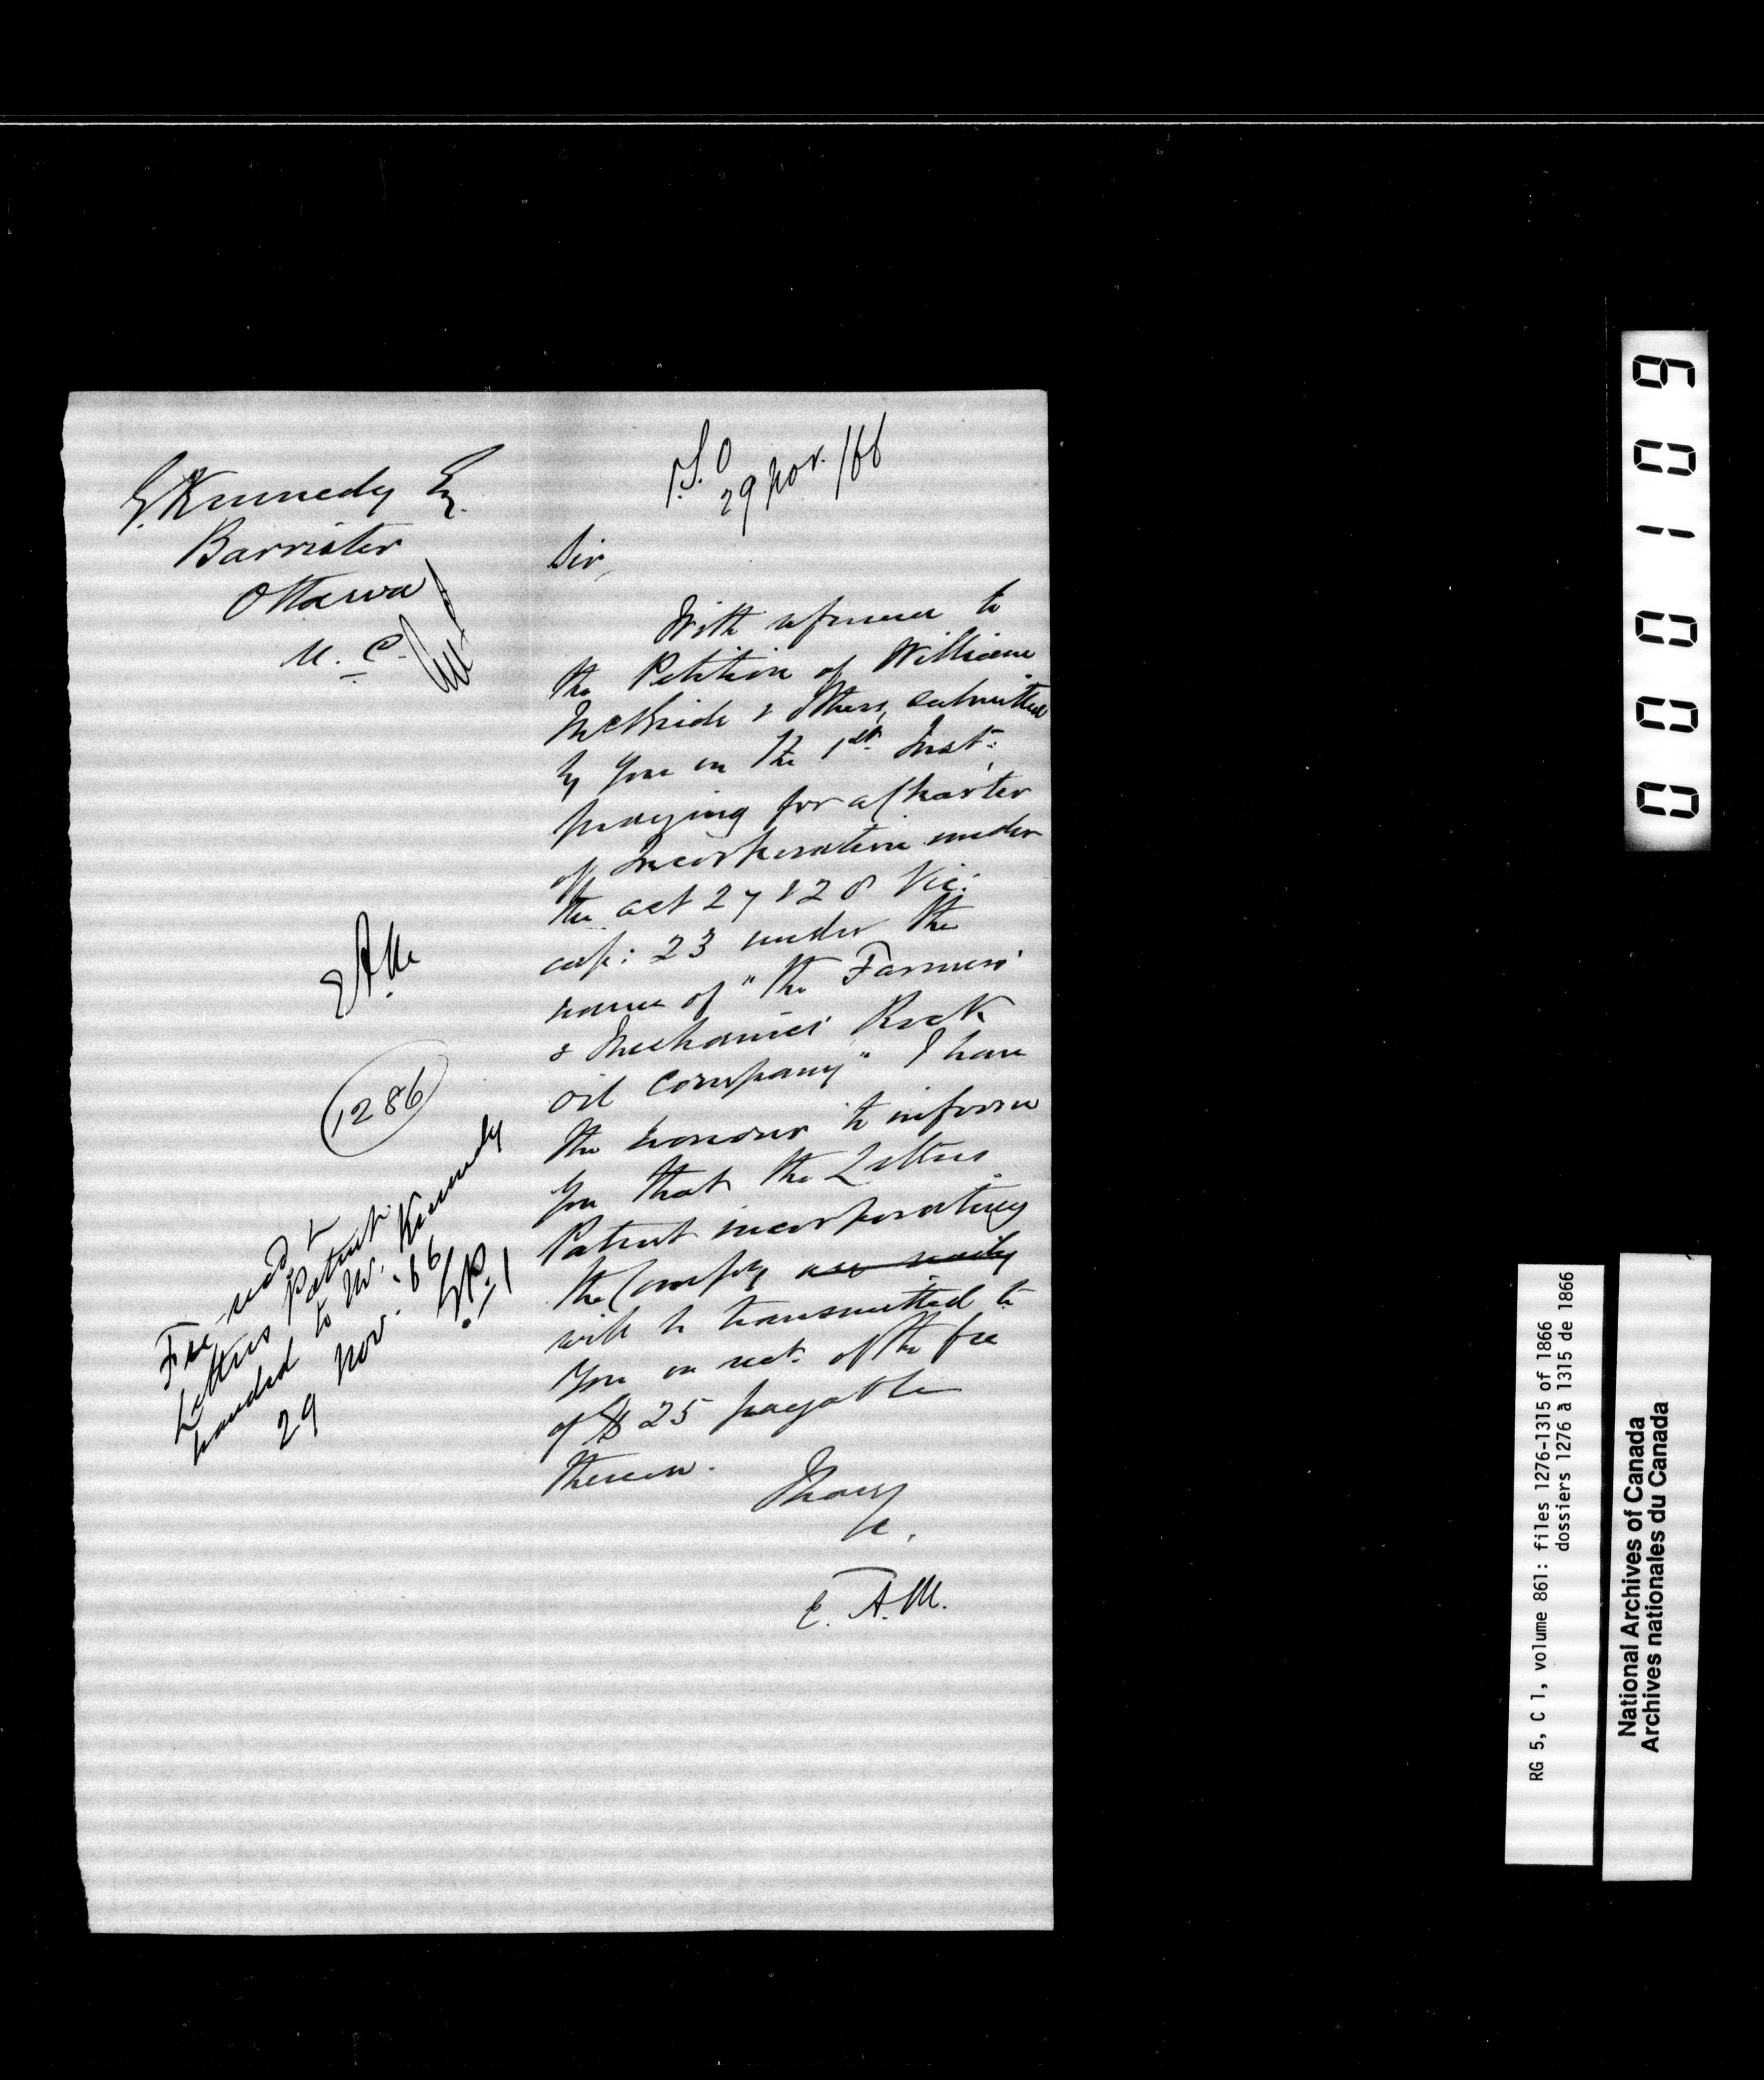 G. Kennedy Eq.
Barrister
Ottawa
U. C.
EAM
1286
Fee recd &
Letters Patent
handed to Mr. Kennedy
29 Nov. '66
P.S.O
29 Nov. /66
Sir,
With reference to
the Petition of William
McBride & others, submitted
by you on the 1st Inst:
praying for a Charter
of Incorporation under
the act 27 & 28 Vic:
cap: 23 under the
name of "the Farmers'
& Mechanics' Rock
oil Company" I have
the honour to inform
you that the Letters
Patent incorporating
the Compy are ready
will be transmitted to
you on rect. of the fee
of $25 payable
thereon.
I have
&c.
E. A. M.
000109
RG 5, C 1, volume 861: files 1276-1315 of 1866
dossiers 1276 à 1315 de 1866
National Archives of Canada
Archives nationales du Canada